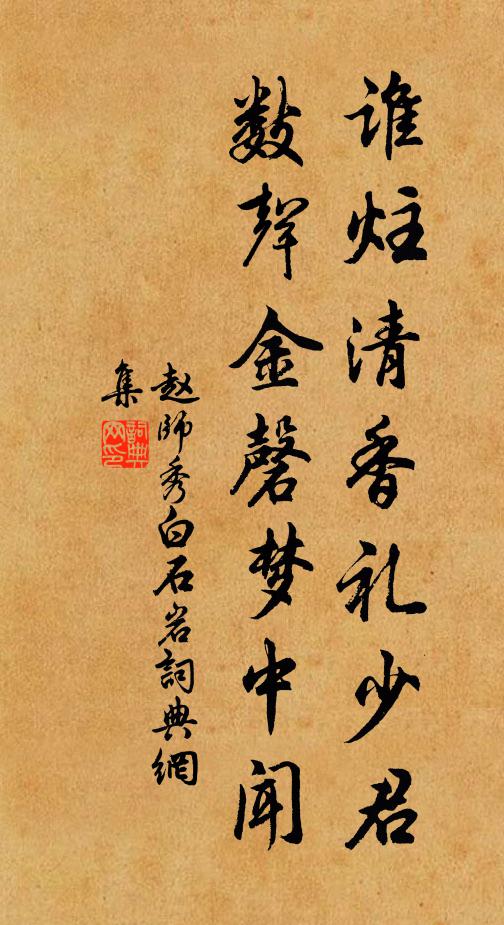 谁炷清香礼少君
数声金磬梦中闻
赵师秀白石岩詞典網
集
詞典
网印